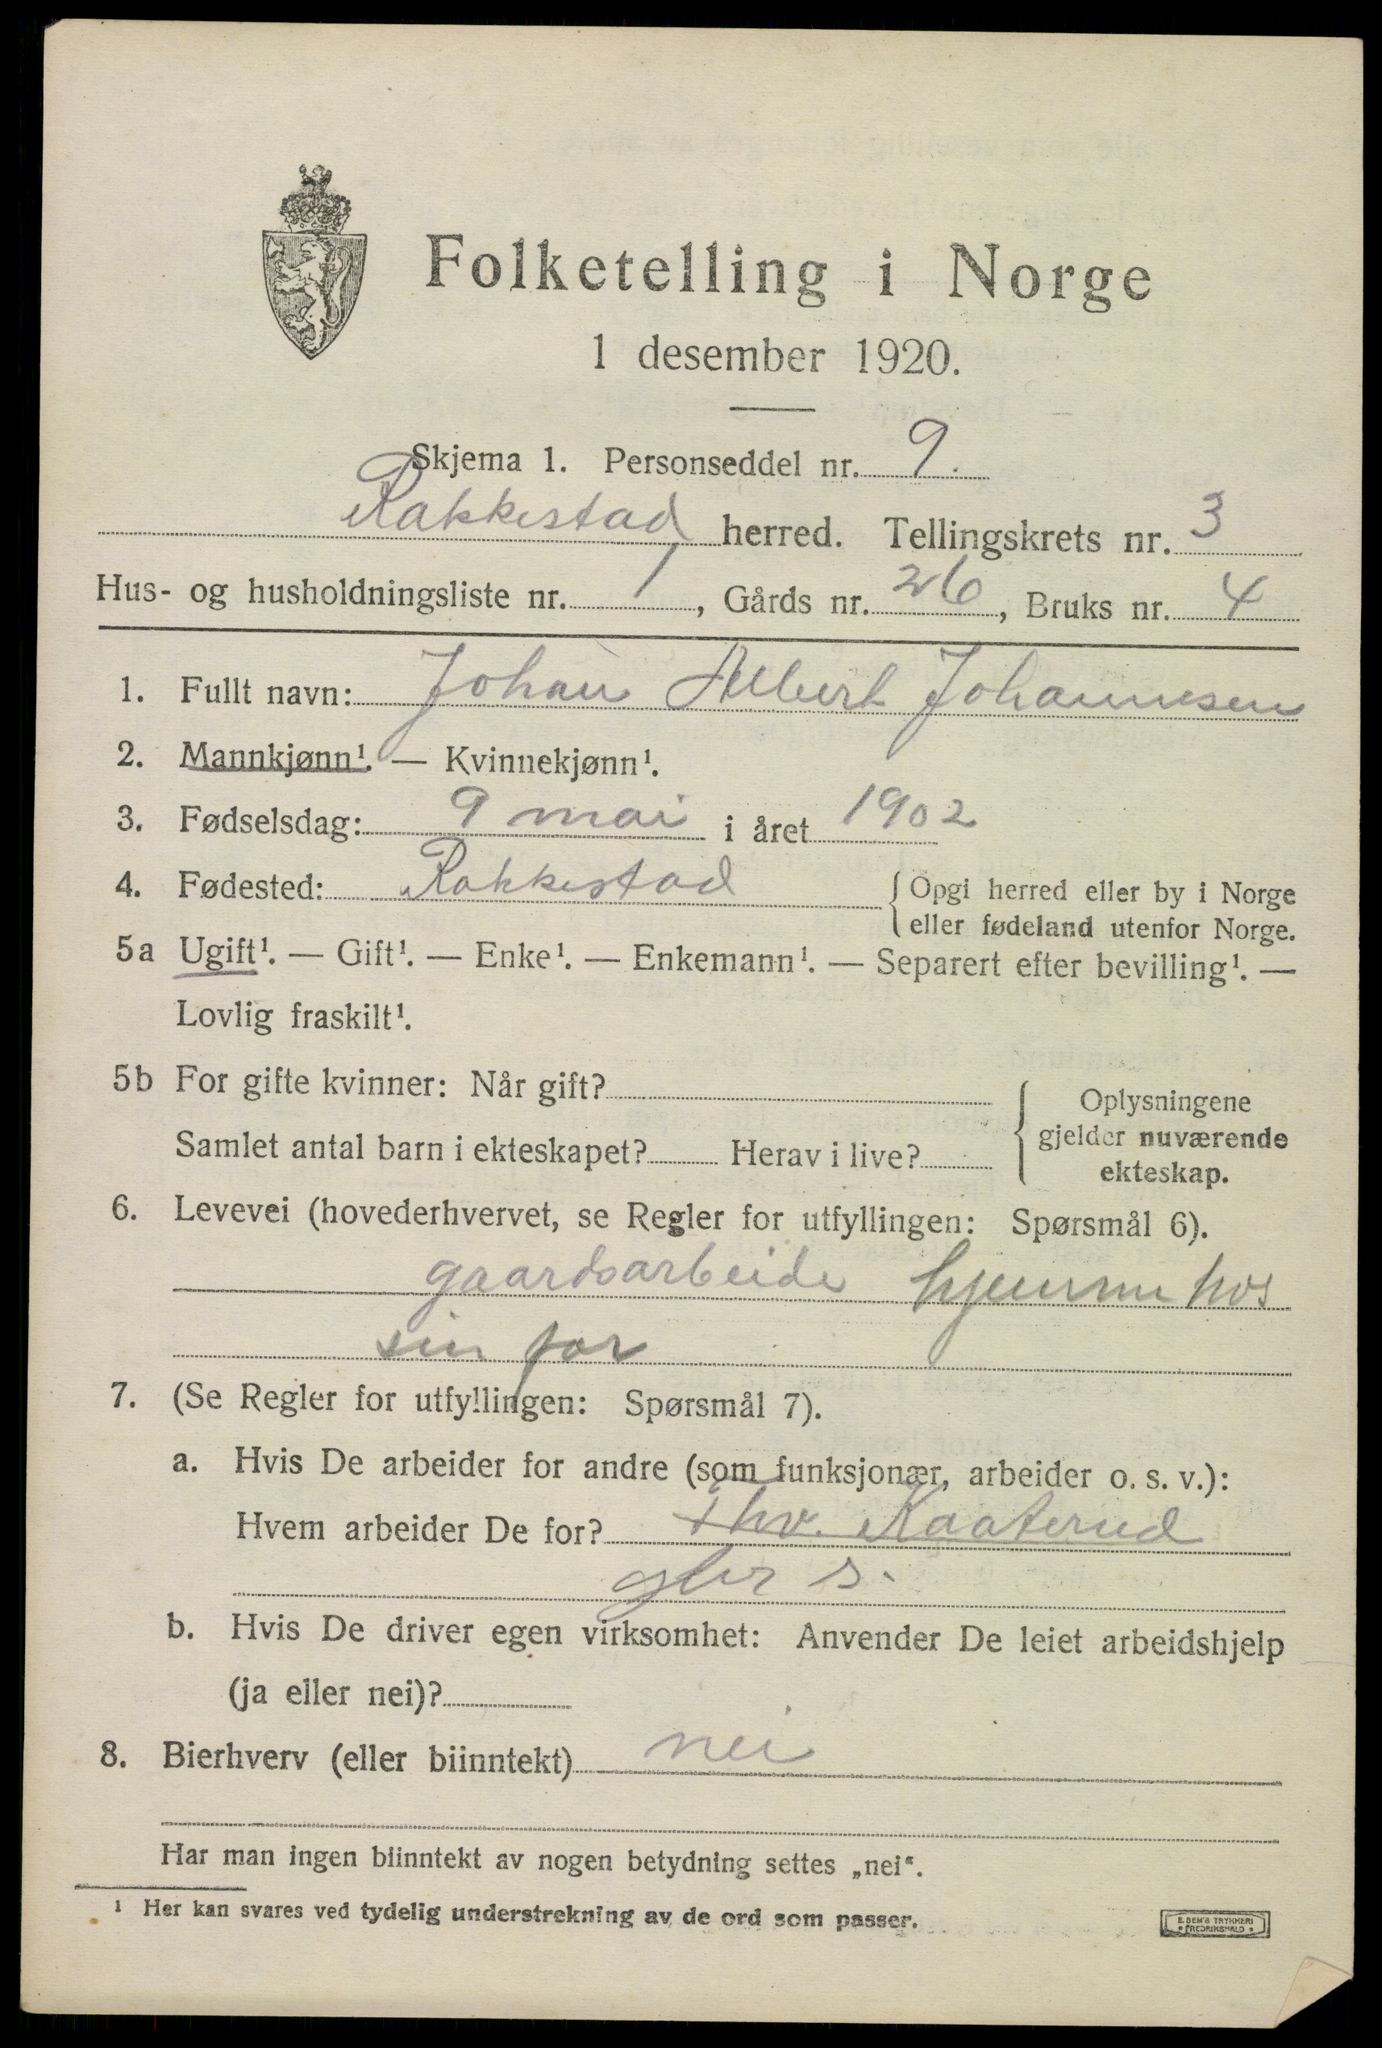 Folketelling i Norge
1 desember 1920.
Skjema 1. Personseddel nr. 9.
Rakkestad herred. Tellingskrets nr. 3
Hus- og husholdningsliste nr. 1, Gårds nr. 26, Bruks nr. 4
1. Fullt navn: Johan Albert Johannesen
2. Mannkjønn¹. — Kvinnekjønn¹.
3. Fødselsdag: 9 mai i året 1902
4. Fødested: Rakkestad { Opgi herred eller by i Norge
eller fødeland utenfor Norge.
5a Ugift¹. — Gift¹. — Enke¹. — Enkemann¹. — Separert efter bevilling¹. —
Lovlig fraskilt¹.
5b For gifte kvinner: Når gift?
Samlet antal barn i ekteskapet? Herav i live?
Oplysningene
gjelder nuværende
ekteskap.
6. Levevei (hovederhvervet, se Regler for utfyllingen: Spørsmål 6).
gaardsarbeide hjemme hos
sin far
7. (Se Regler for utfyllingen: Spørsmål 7).
a. Hvis De arbeider for andre (som funksjonær, arbeider o. s. v.):
Hvem arbeider De for? Thv. Kaaterud
gbr s.
b. Hvis De driver egen virksomhet: Anvender De leiet arbeidshjelp
(ja eller nei)?
8. Bierhverv (eller biinntekt) nei
Har man ingen biinntekt av nogen betydning settes „nei“.
¹ Her kan svares ved tydelig understrekning av de ord som passer.
E. SEM'S TRYKKERI
• FREDRIKSHALD •